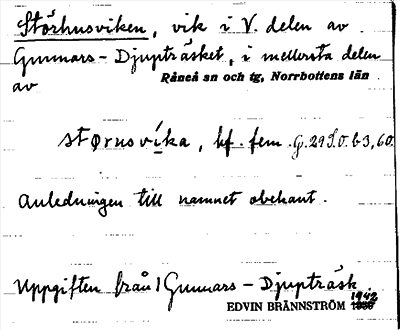 Störhusviken, vik i V. delen av
Gunnars-Djupträsket, i mellersta delen
av Råneå sn och tg, Norrbottens län
størnsvíka, bf. fem. G. 29 S.O. b3,60.
Anledningen till namnet obekant.
Uppgiften från Gunnars-Djupträsk.
EDVIN BRÄNNSTRÖM 1942